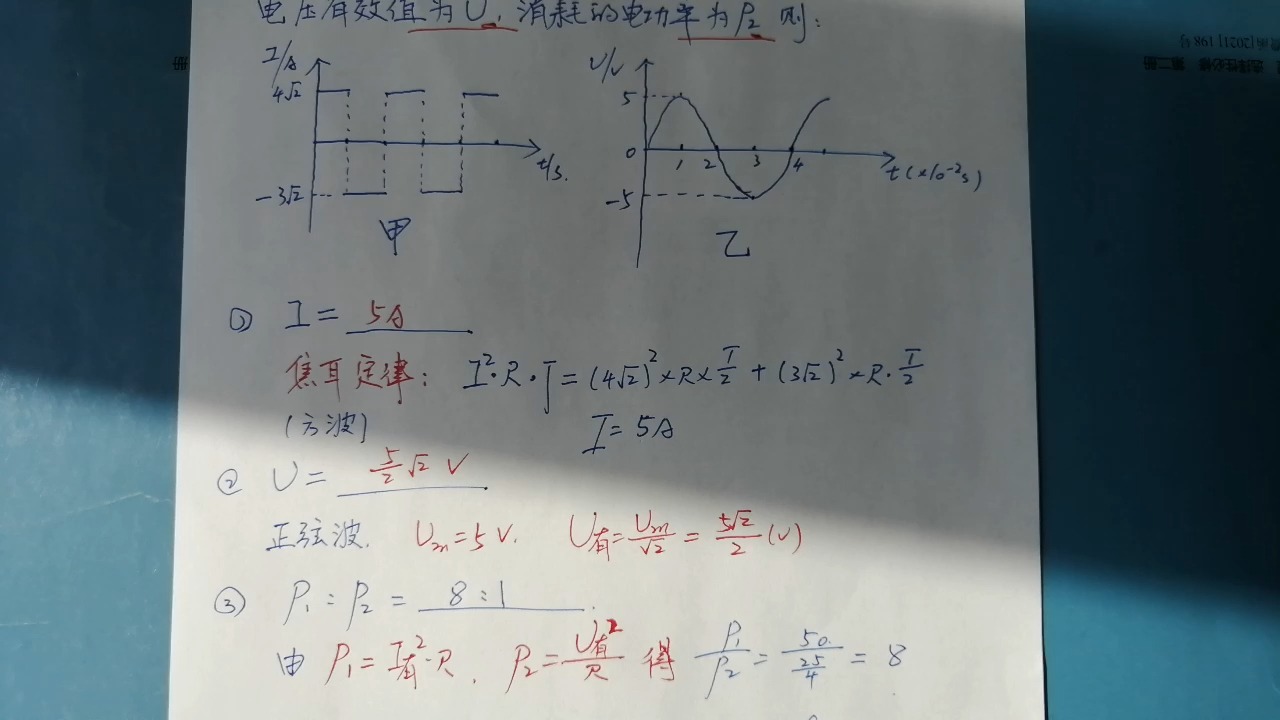 电压有效值为U, 消耗的电功率为P₂ 则:
I/A
4√2
-3√2
t/s.
甲
U/V
5
0
1 2 3 4
-5
t(×10⁻²s)
乙
① I = 5A
焦耳定律: I²·R·T = (4√2)²×R×T/2 + (3√2)²×R·T/2
(方波) I = 5A
② U = 5/2 √2 V
正弦波. Um=5V. U有=Um/√2 = 5√2/2 (V)
③ P₁:P₂ = 8:1
由 P₁=I有²·R, P₂=U有²/R 得 P₁/P₂ = 50/(25/4) = 8
[2021] 198号
选择性必修 第二册
册